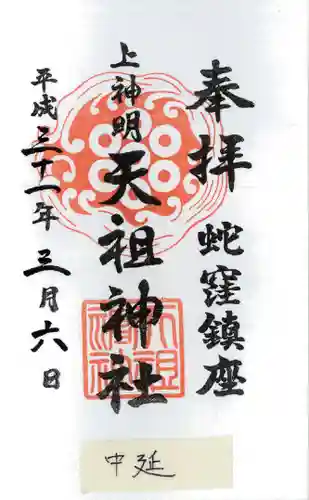 奉拝
蛇窪鎮座
上神明
天祖神社
平成三十一年三月六日
中延